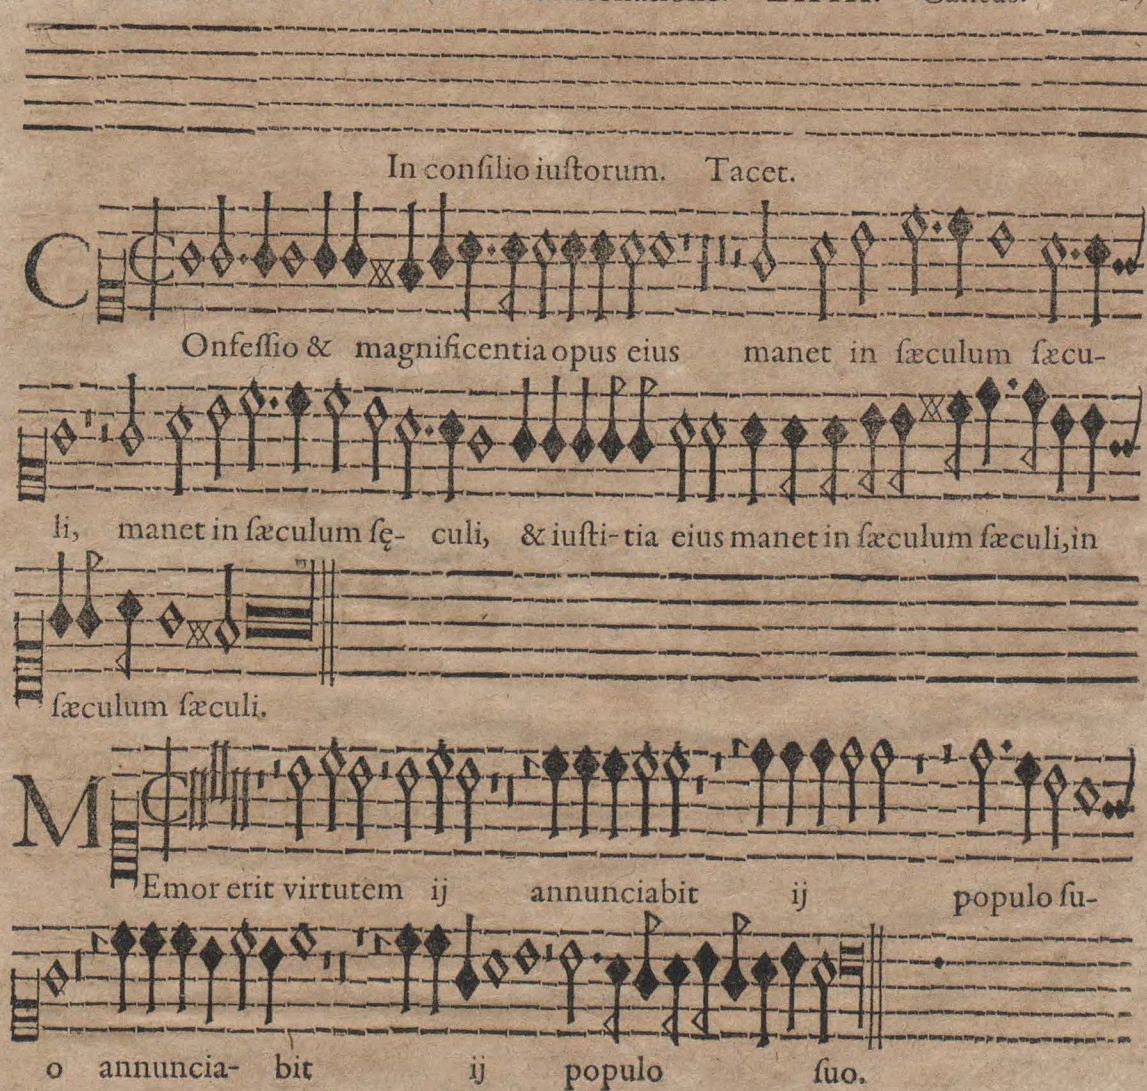 LXIII. Cantus.
In conſilio iuſtorum. Tacet.
COnfeſſio & magnificentia opus eius manet in ſæculum ſæcu-
li, manet in ſæculum ſę- culi, & iuſti-tia eius manet in ſæculum ſæculi, in
ſæculum ſæculi.
MEmor erit virtutem ij annunciabit ij populo ſu-
o annuncia- bit ij populo ſuo.